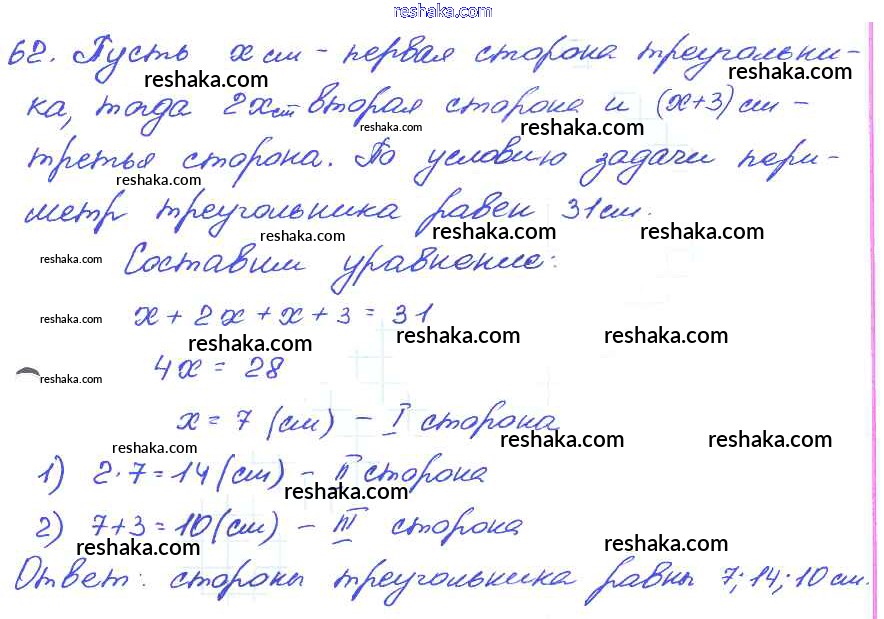 reshaka.com
62. Пусть x см - первая сторона треугольни-
reshaka.com reshaka.com
ка, тогда 2x см вторая сторона и (x+3) см -
reshaka.com reshaka.com
третья сторона. По условию задачи пери-
reshaka.com
метр треугольника равен 31 см.
reshaka.com reshaka.com reshaka.com
reshaka.com Составим уравнение:
reshaka.com x + 2x + x + 3 = 31
reshaka.com reshaka.com reshaka.com
4x = 28
reshaka.com
x = 7 (см) - I сторона
reshaka.com reshaka.com reshaka.com
1) 2·7=14 (см) - II сторона
reshaka.com
2) 7+3=10 (см) - III сторона
reshaka.com reshaka.com
Ответ: стороны треугольника равны 7; 14; 10 см.